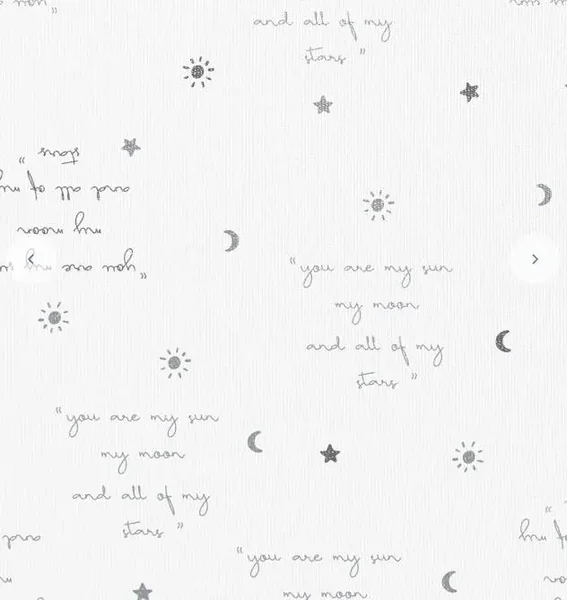 and all of my
stars”
stars”
and all of my
my moon
“you are my
“you are my sun
my moon
and all of my
stars”
“you are my sun
my moon
and all of my
stars”
and
“you are my sun
my moon
my